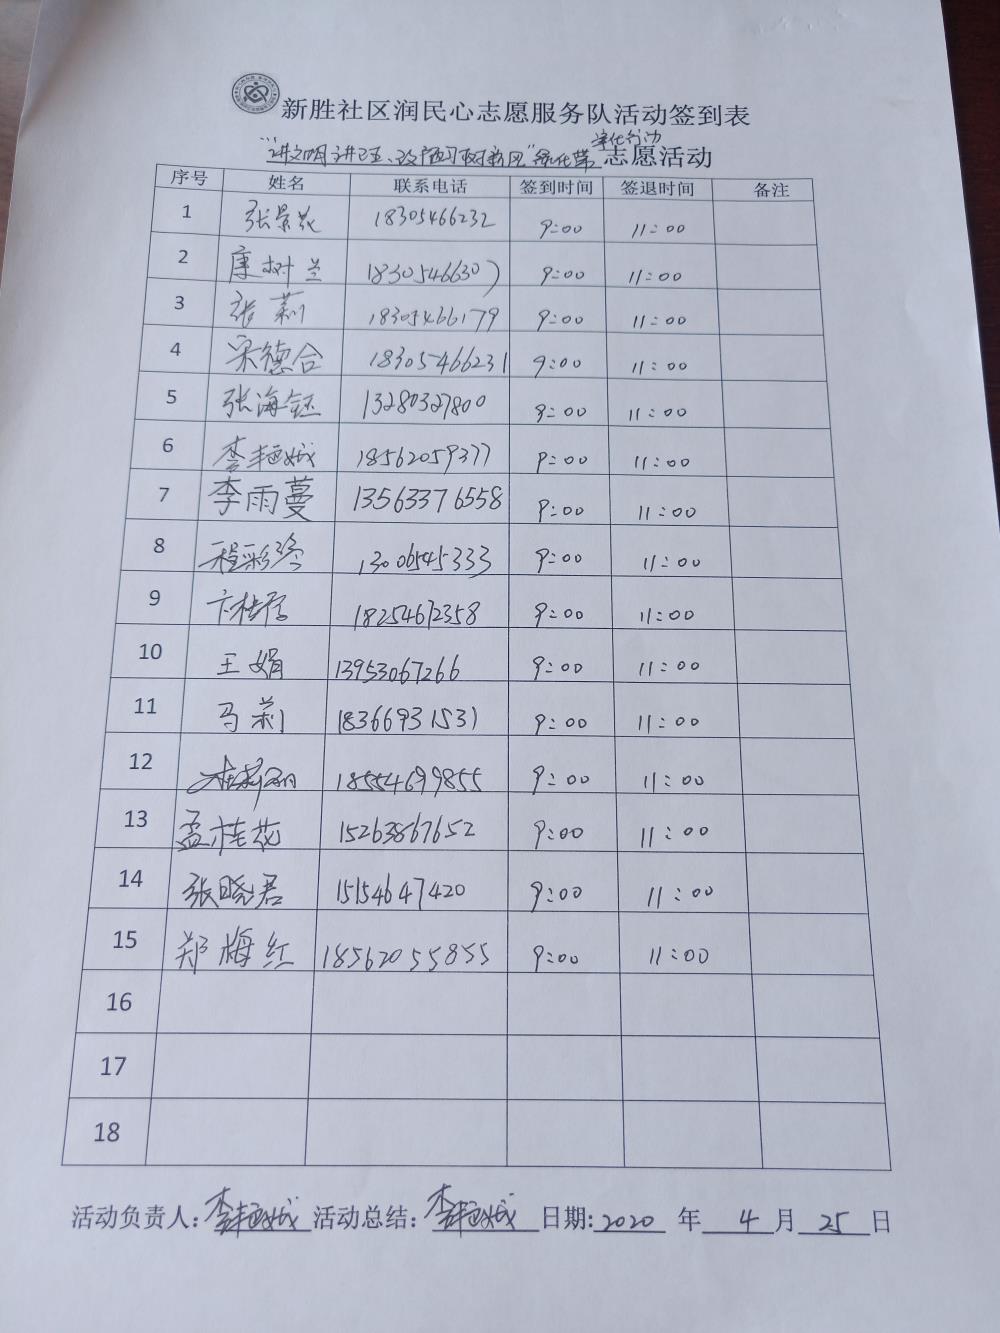 新胜社区润民心志愿服务队活动签到表
净化行动
"讲文明讲卫生、改陋习树新风" 志愿活动
序号 姓名 联系电话 签到时间 签退时间 备注
1 张景花 18305466232 9:00 11:00
2 康树兰 18305466307 9:00 11:00
3 张莉 18305466179 9:00 11:00
4 宋德合 18305466231 9:00 11:00
5 张海钰 13280327800 9:00 11:00
6 李艳娥 18562059377 9:00 11:00
7 李雨蔓 13563376558 9:00 11:00
8 程彩玲 13006545333 9:00 11:00
9 18254672358 9:00 11:00
10 王娟 13953067266 9:00 11:00
11 马莉 18366931531 9:00 11:00
12 18554699855 9:00 11:00
13 孟桂花 15263867652 9:00 11:00
14 张晓君 15154647420 9:00 11:00
15 郑梅红 18562055855 9:00 11:00
16
17
18
活动负责人:李艳娥 活动总结:李艳娥 日期:2020 年 4 月 25 日